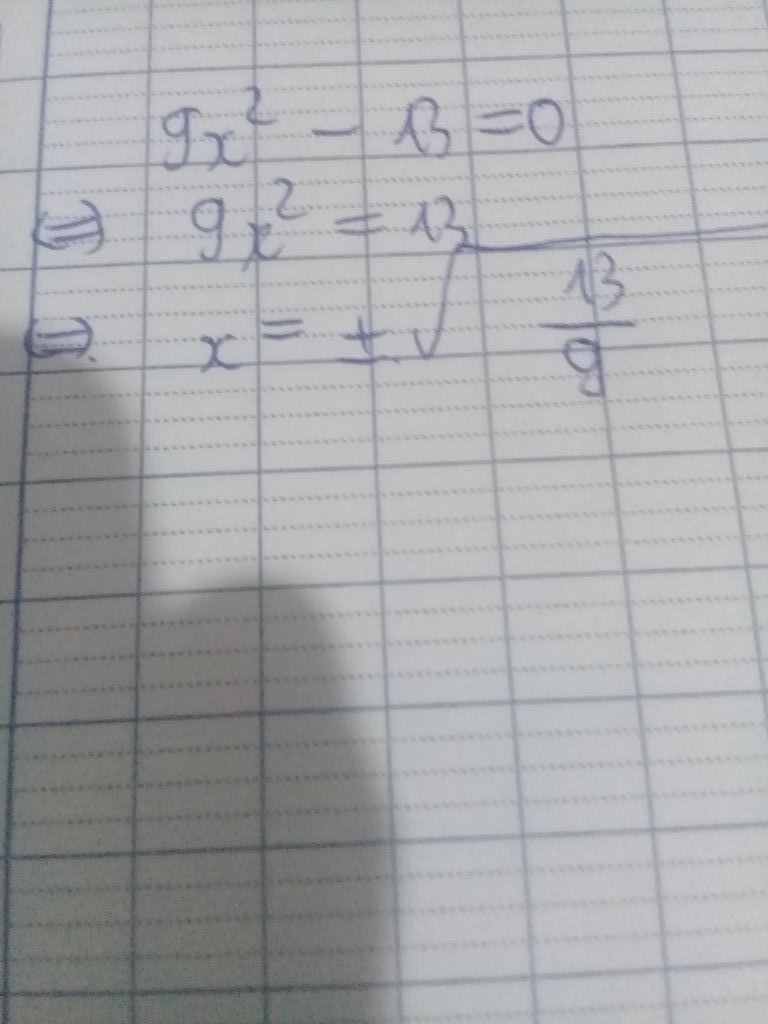 9x² - 13 = 0
⇔ 9x² = 13
⇔ x = ± √(13/9)